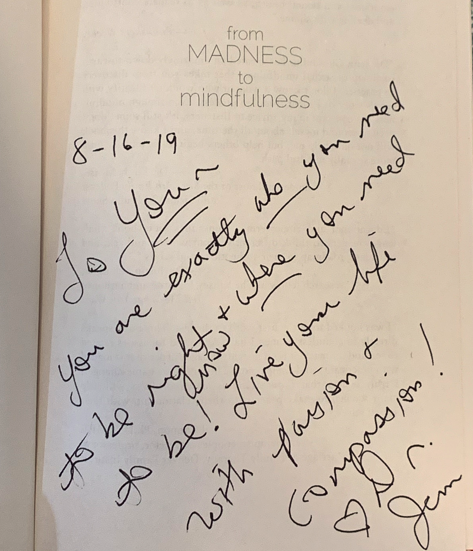 from
MADNESS
to
mindfulness
8-16-19
To
You are exactly who you need
to be right now & where you need
to be! Live your life
with passion &
compassion!
♡ Dr.
Jenn